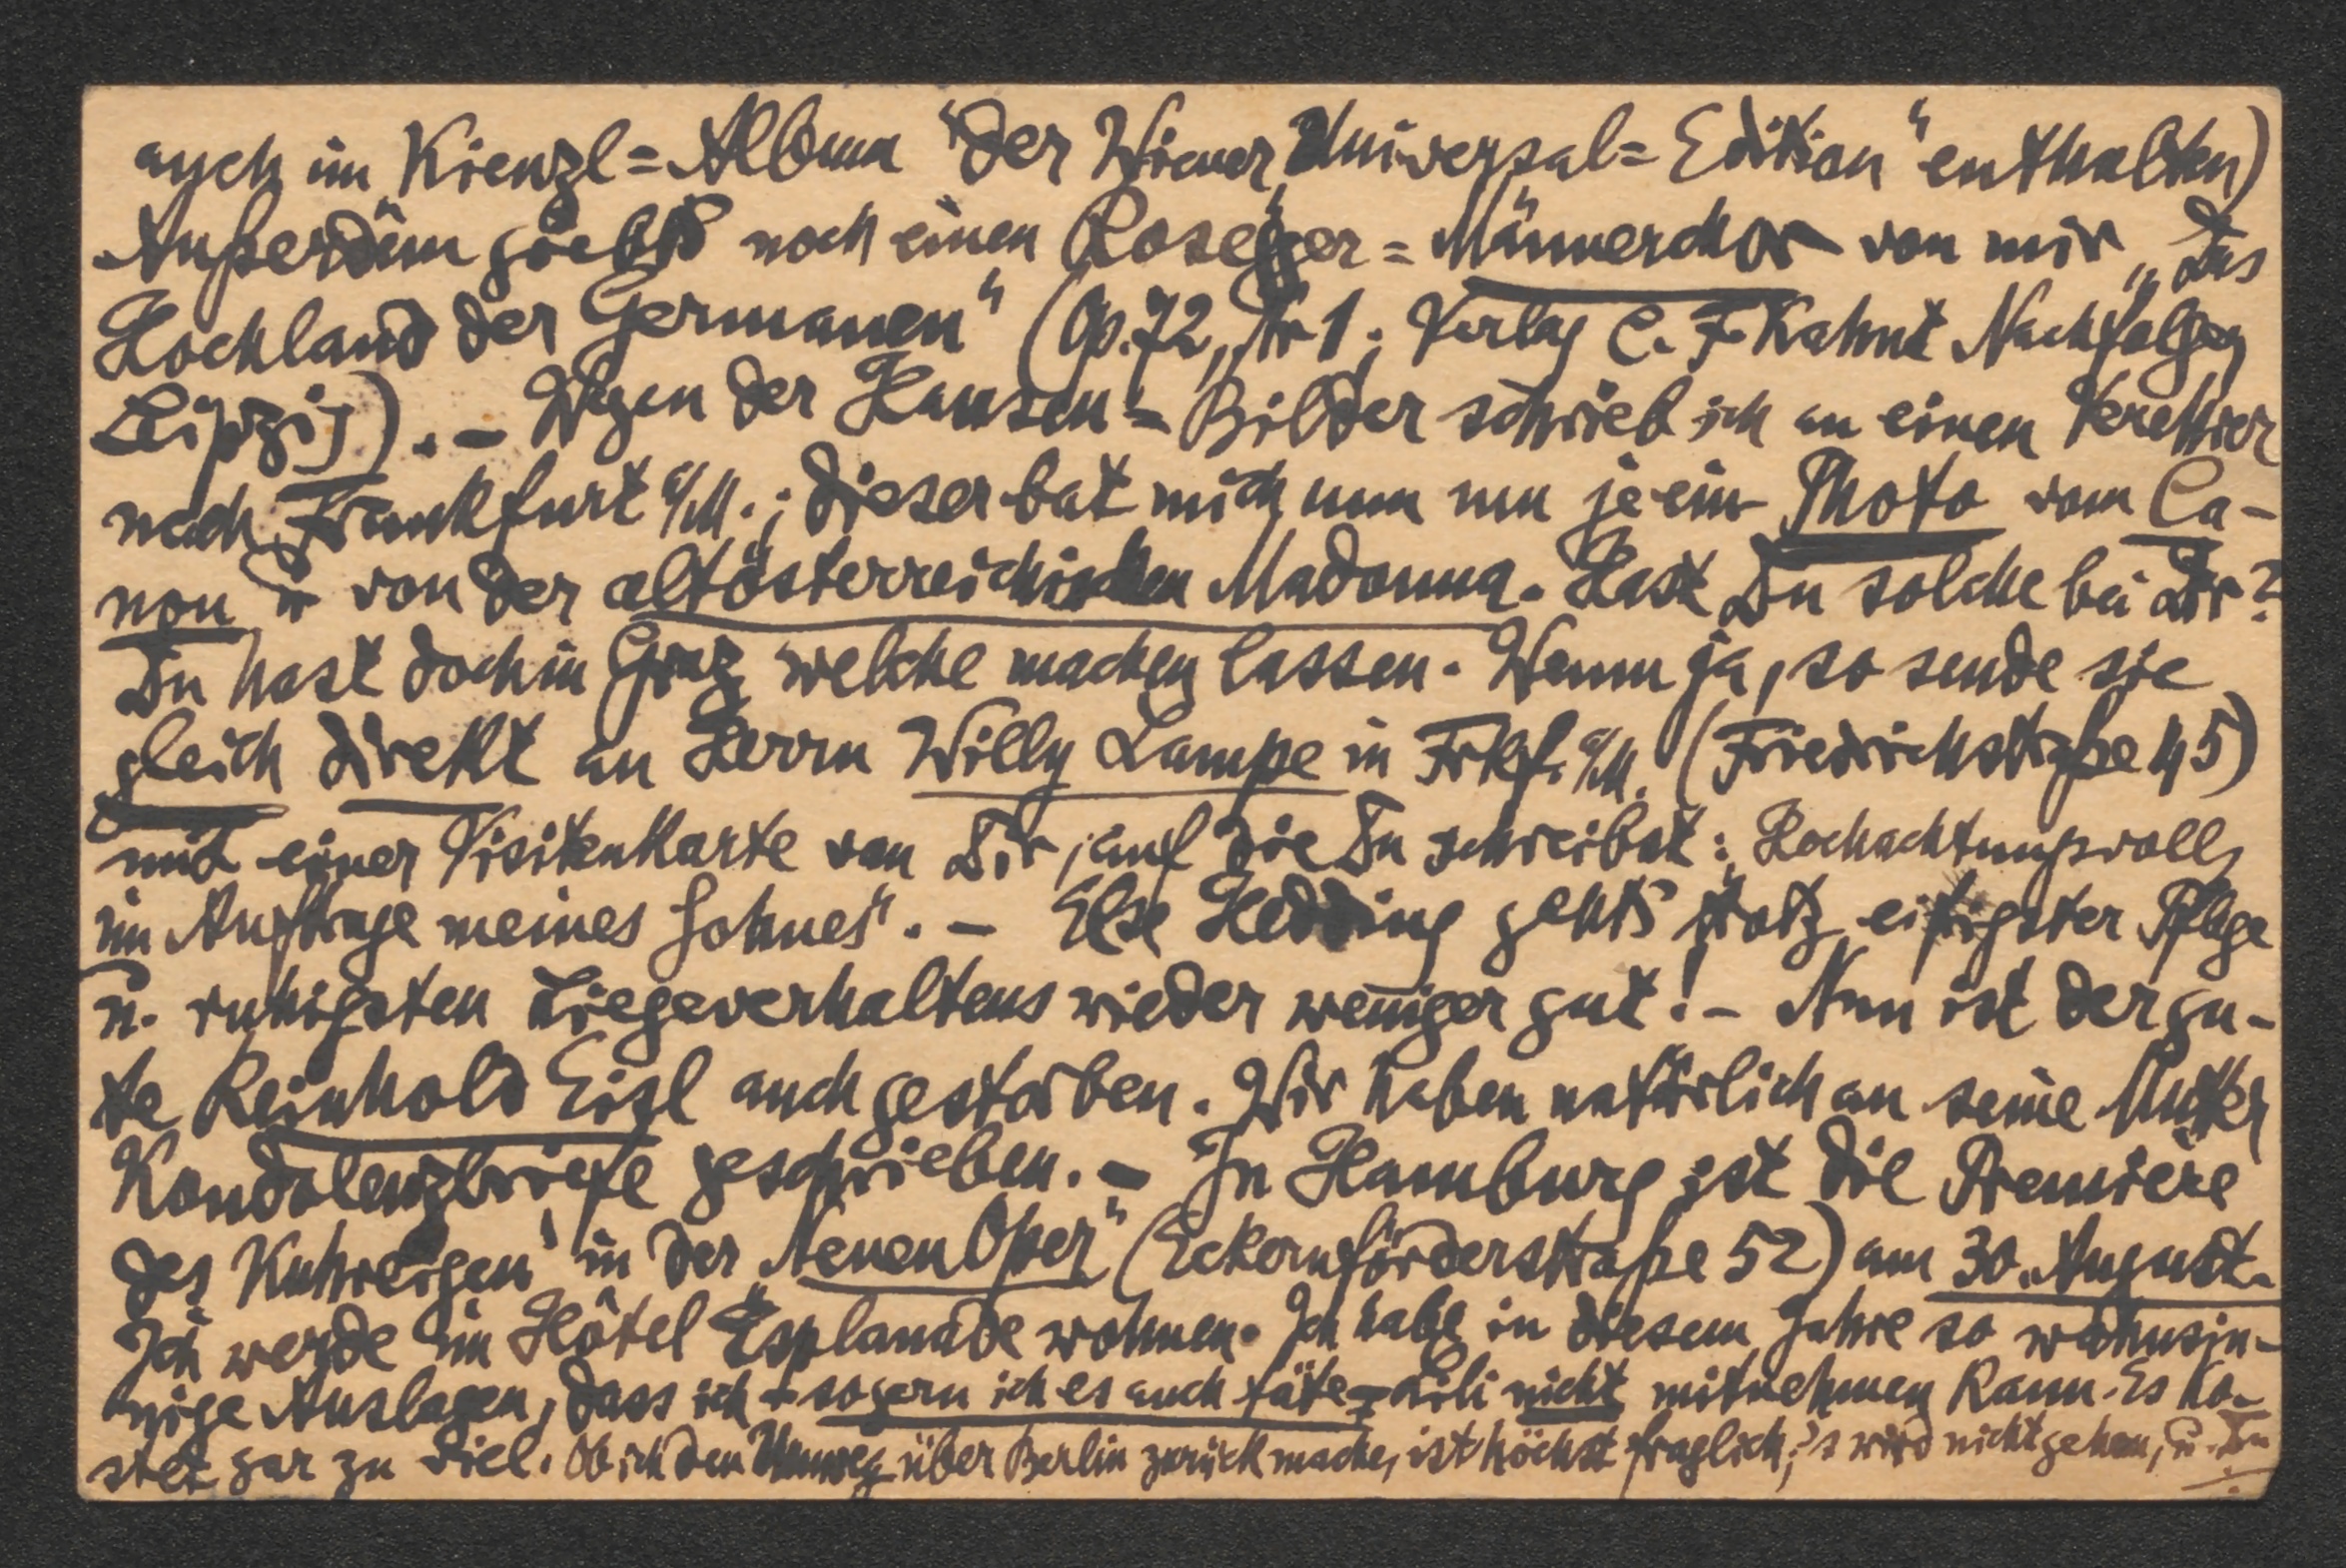 auch im Kienzl=Album "der Wiener Universal=Edition" enthalten)
Außerdem giebts noch einen Rosegger=Männerchor von mir „Das
Hochland der Germanen“ (Op. 72, Nr 1; Verlag C. F. Kahnt Nachfolger
Leipzig). – Wegen der Hansen=Bilder schrieb ich an einen Verehrer
nach Frankfurt a/M.; dieser bat mich nun um je ein Photo vom Ca-
non u von der altösterreichischen Madonna. Hast Du solche bei Dir?
Du hast doch in Graz welche machen lassen. Wenn ja, so sende sie
gleich direkt an Herrn Willy Lampe in Frkf. a/M. (Friedrichstraße 45)
mit einer Visitenkarte von Dir, auf die Du schreibst: „Hochachtungsvoll,
im Auftrage meines Sohnes“. – Else gehts trotz eifrigster Pflege
u. ruhigsten Liegeverhaltens wieder weniger gut! – Nun ist der gu-
te Reinhold Eisl auch gestorben. Wir haben natürlich an seine Mutter
Kondolenzbriefe geschrieben. – In Hamburg ist die Premiere
des Kuhreigen' in der „Neuen Oper“ (Eckernförderstraße 52) am 30. August.
Ich werde im Hôtel Esplanade wohnen. Ich habe in diesem Jahre so wahnsin-
nige Auslagen, dass ich – so gern ich es auch täte – Lili nicht mitnehmen kann. Es ko-
stet gar zu viel. Ob ich den Umweg über Berlin zurück mache, ist höchst fraglich; 's wird nicht gehen, u. Du